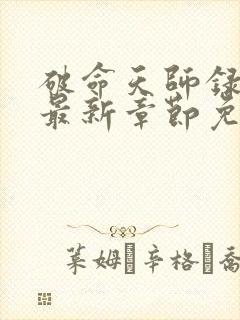 破命天師録
最新章節免
莱姆·辛格·喬